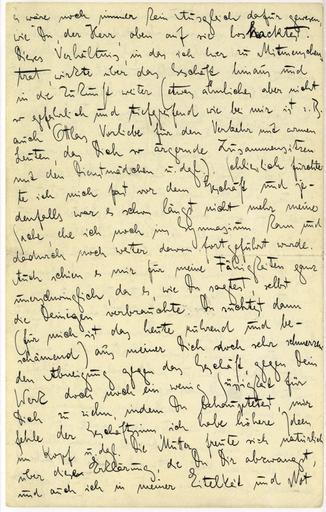 es wäre noch immer kein Ausgleich dafür gewesen
wie Du, der Herr, oben auf sie loshacktest.
Dieses Verhältnis, in das ich hier zu Mitmenschen
trat, wirkte über das Geschäft hinaus und
in die Zukunft weiter (etwas ähnliches, aber nicht
so gefährlich und tiefgreifend wie bei mir ist z. B.
auch Ottlas Vorliebe für den Verkehr mit armen
Leuten, das Dich so ärgernde Zusammensitzen
mit den Dienstmädchen u. dgl.). Schließlich fürchte-
te ich mich fast vor dem Geschäft und je-
denfalls war es schon längst nicht mehr meine
Sache, ehe ich noch ins Gymnasium kam und
dadurch noch weiter davon fortgeführt wurde.
Auch schien es mir für meine Fähigkeiten ganz
unerschwinglich, da es, wie Du sagtest, selbst
die Deinigen verbrauchte. Du suchtest dann
(für mich ist das heute rührend und be-
schämend) aus meiner Dich doch sehr schmerzen-
den Abneigung gegen das Geschäft, gegen Dein
Werk doch noch ein wenig Süssigkeit für
Dich zu ziehn, indem Du behauptetest, mir
fehle der Geschäftssinn, ich habe höhere Ideen
im Kopf u. dgl. Die Mutter freute sich natürlich
über diese Erklärung, die Du Dir abzwangst,
und auch ich in meiner Eitelkeit und Not